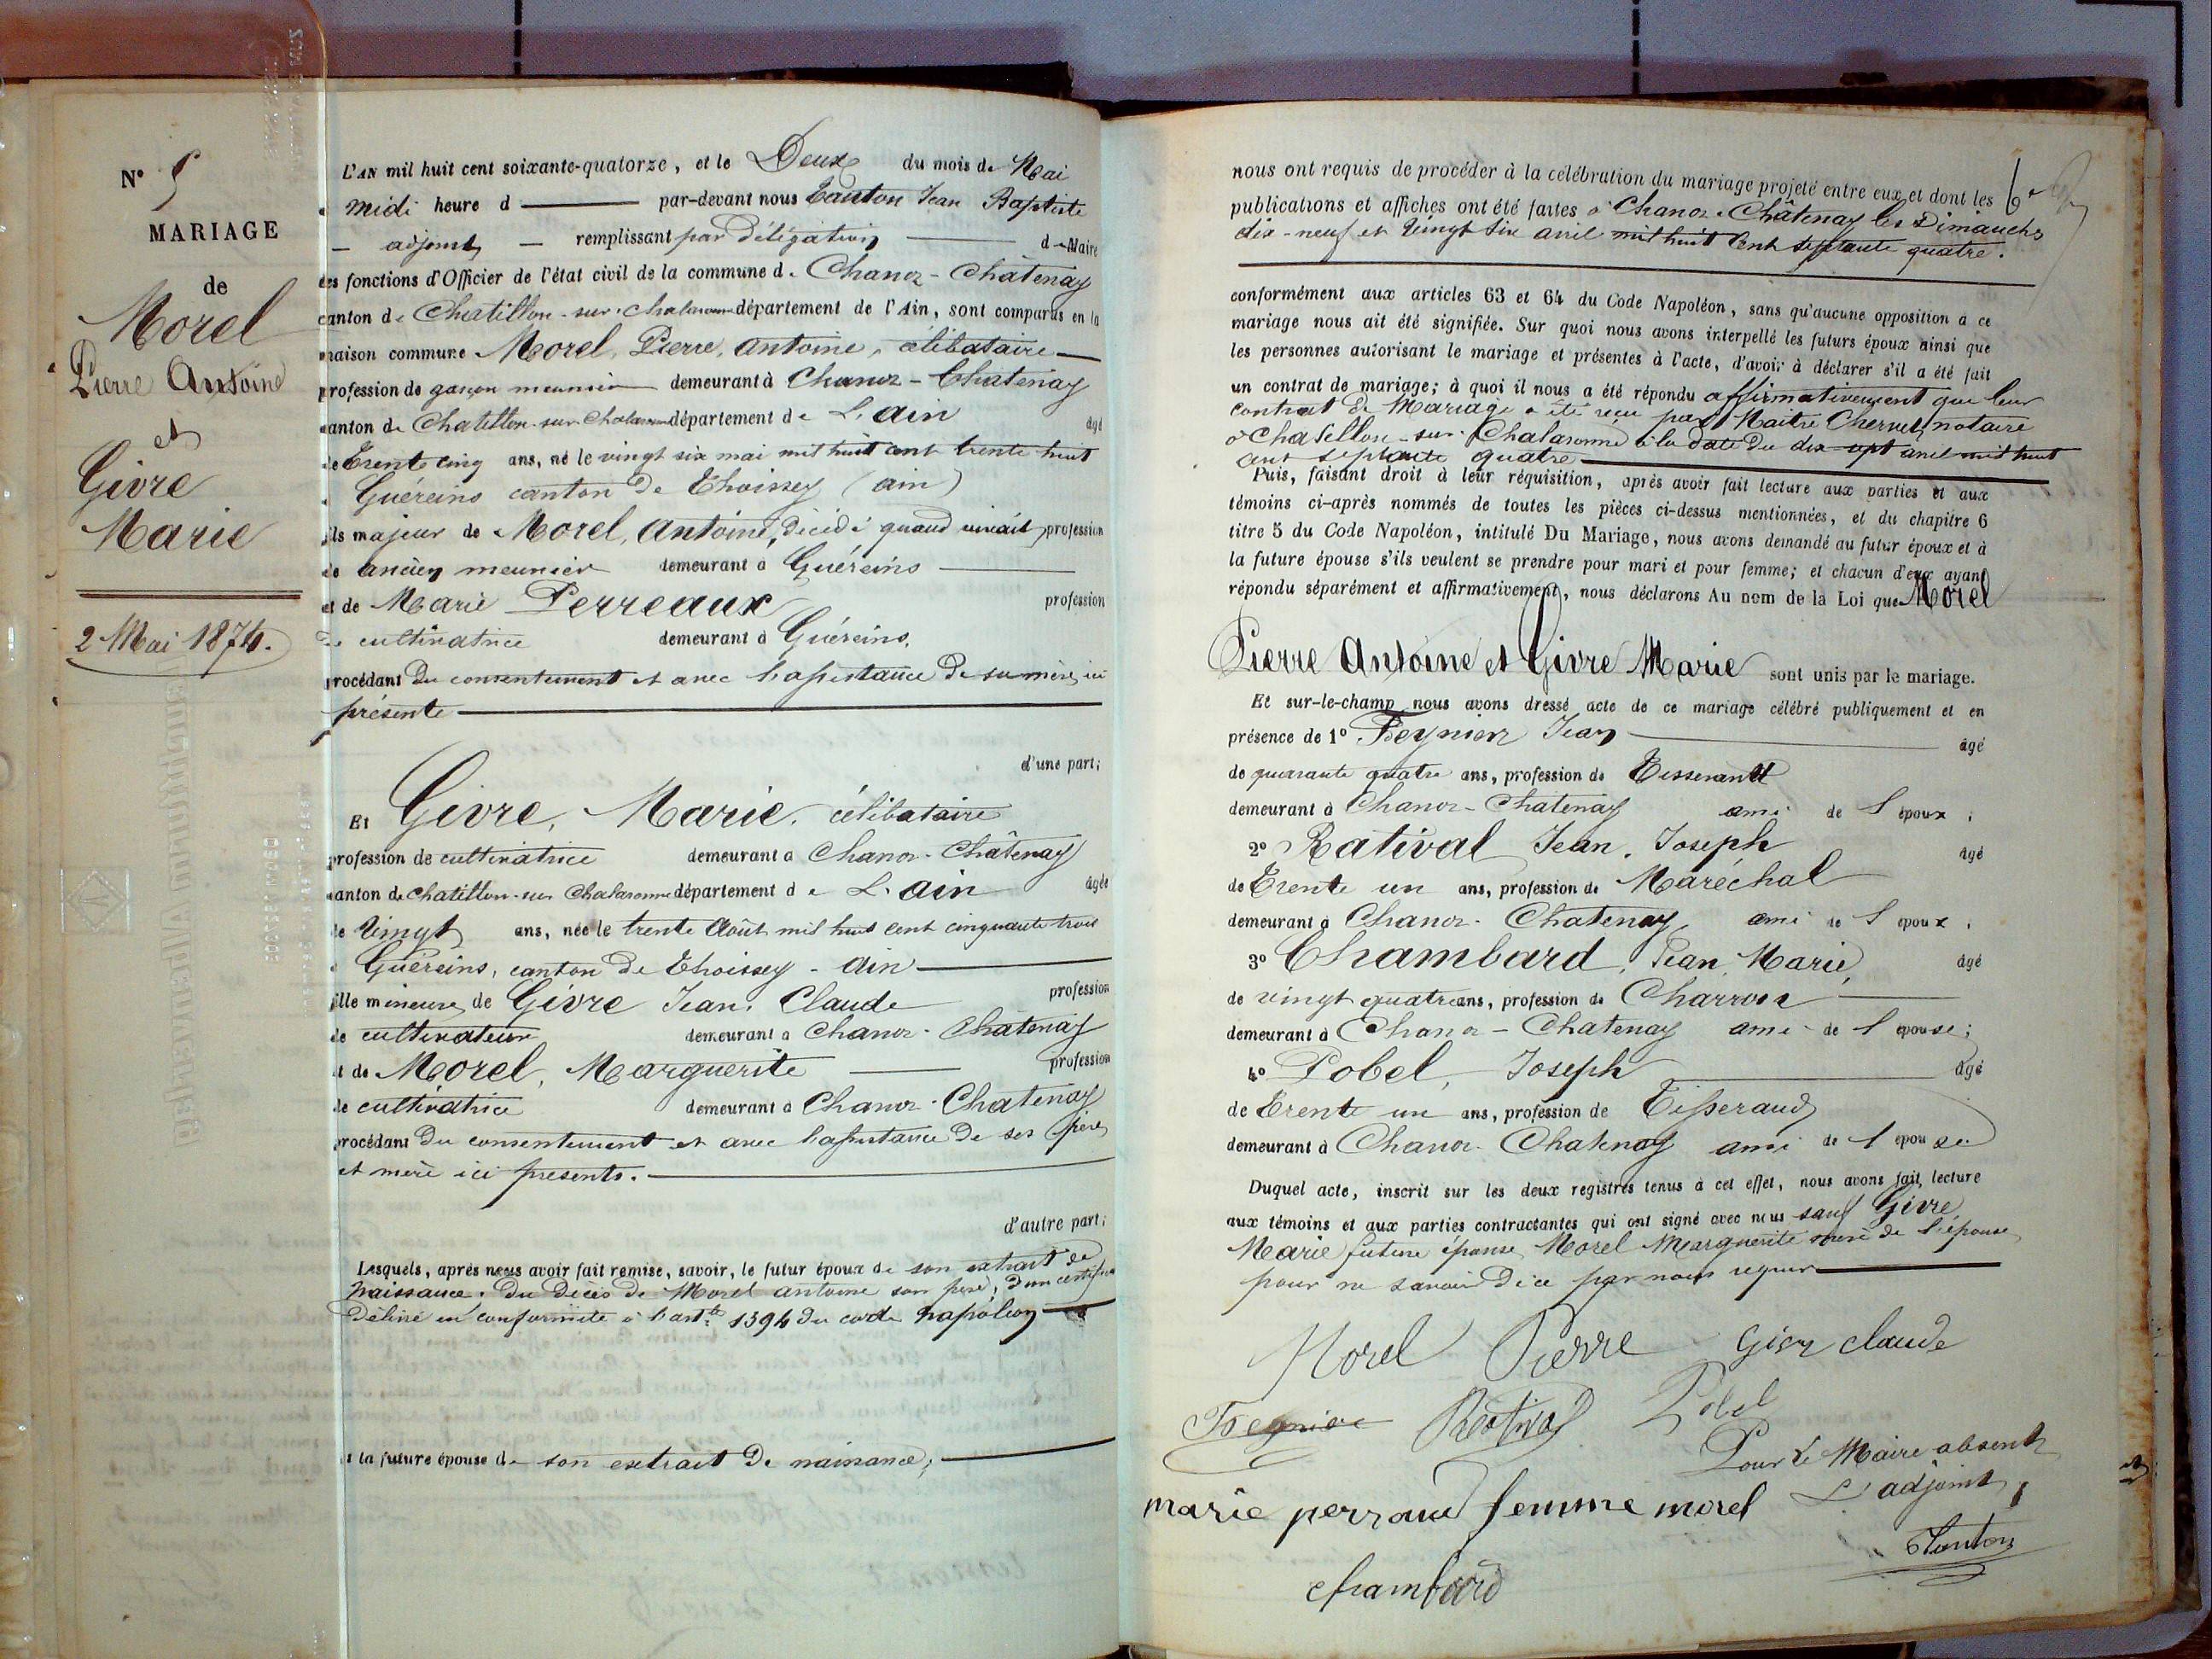 N° 5
MARIAGE
de
Morel
Pierre Antoine
et
Givre
Marie
2 Mai 1874.
L'AN mil huit cent soixante-quatorze, et le Deux du mois de Mai
à midi heure d par-devant nous Tanton Jean Baptiste
adjoint remplissant par délégation de Maire
les fonctions d'Officier de l'état civil de la commune de Chanoz-Châtenay
canton de Chatillon-sur-Chalaronne département de l'Ain, sont comparus en la
maison commune Morel, Pierre, Antoine, célibataire
profession de garçon meunier demeurant à Chanoz-Chatenay
canton de Chatillon-sur-Chalaronne département de L'ain âgé
de Trente cinq ans, né le vingt six mai mil huit cent trente huit
à Guéreins canton de Thoissey (ain)
fils majeur de Morel, Antoine, décédé quand vivait profession
de ancien meunier demeurant à Guéreins
et de Marie Perreaux profession
de cultivatrice demeurant à Guéreins.
procédant du consentement et avec l'assistance de sa mère ici
présente
d'une part;
Et Givre, Marie, célibataire
profession de cultivatrice demeurant à Chanoz-Châtenay
canton de Chatillon-sur Chalaronne département de L'ain âgée
de Vingt ans, née le trente Août mil huit cent cinquante trois
à Guéreins, canton de Thoissey - Ain
fille mineure de Givre Jean, Claude profession
de cultivateur demeurant à Chanoz-Châtenay
et de Morel, Marguerite profession
de cultivatrice demeurant à Chanoz-Chatenay
procédant du consentement et avec l'assistance de ses père
et mère ici présents.
d'autre part;
Lesquels, après nous avoir fait remise, savoir, le futur époux de son extrait de
naissance, du décès de Morel antoine son père, d'un certificat
délivré en conformité à l'art. 1394 du code napoléon
et la future épouse de son extrait de naissance;
nous ont requis de procéder à la célébration du mariage projeté entre eux, et dont les
publications et affiches ont été faites à Chanoz-Châtenay les Dimanches
dix-neuf et vingt six avril mil huit cent septante quatre.
conformément aux articles 63 et 64 du Code Napoléon, sans qu'aucune opposition à ce
mariage nous ait été signifiée. Sur quoi nous avons interpellé les futurs époux ainsi que
les personnes autorisant le mariage et présentes à l'acte, d'avoir à déclarer s'il a été fait
un contrat de mariage; à quoi il nous a été répondu affirmativement que leur
contrat de Mariage a été reçu par Maitre notaire
à Chatillon-sur-Chalaronne à la date du dix-sept avril mil huit
cent septante quatre
Puis, faisant droit à leur réquisition, après avoir fait lecture aux parties et aux
témoins ci-après nommés de toutes les pièces ci-dessus mentionnées, et du chapitre 6
titre 5 du Code Napoléon, intitulé Du Mariage, nous avons demandé au futur époux et à
la future épouse s'ils veulent se prendre pour mari et pour femme; et chacun d'eux ayant
répondu séparément et affirmativement, nous déclarons Au nom de la Loi que Morel
Pierre Antoine et Givre Marie sont unis par le mariage.
Et sur-le-champ nous avons dressé acte de ce mariage célébré publiquement et en
présence de 1° Jean âgé
de quarante quatre ans, profession de Tisserand
demeurant à Chanoz-Chatenay ami de l'époux;
2° Ratival Jean, Joseph âgé
de Trente un ans, profession de Maréchal
demeurant à Chanoz-Chatenay ami de l'époux;
3° Chambard, Jean, Marie, âgé
de vingt quatre ans, profession de Charron
demeurant à Chanoz-Chatenay ami de l'épouse;
4° Pobel, Joseph âgé
de Trente un ans, profession de Tisserand
demeurant à Chanoz-Chatenay ami de l'épouse
Duquel acte, inscrit sur les deux registres tenus à cet effet, nous avons fait lecture
aux témoins et aux parties contractantes qui ont signé avec nous sauf Givre
Marie future épouse, Morel Marguerite mère de l'épouse
pour ne savoir de ce par nous requis
Morel Pierre Givr claude
Ratival Pobel
Pour le Maire absent
L'adjoint,
marie perraud femme morel
Tanton
chambard